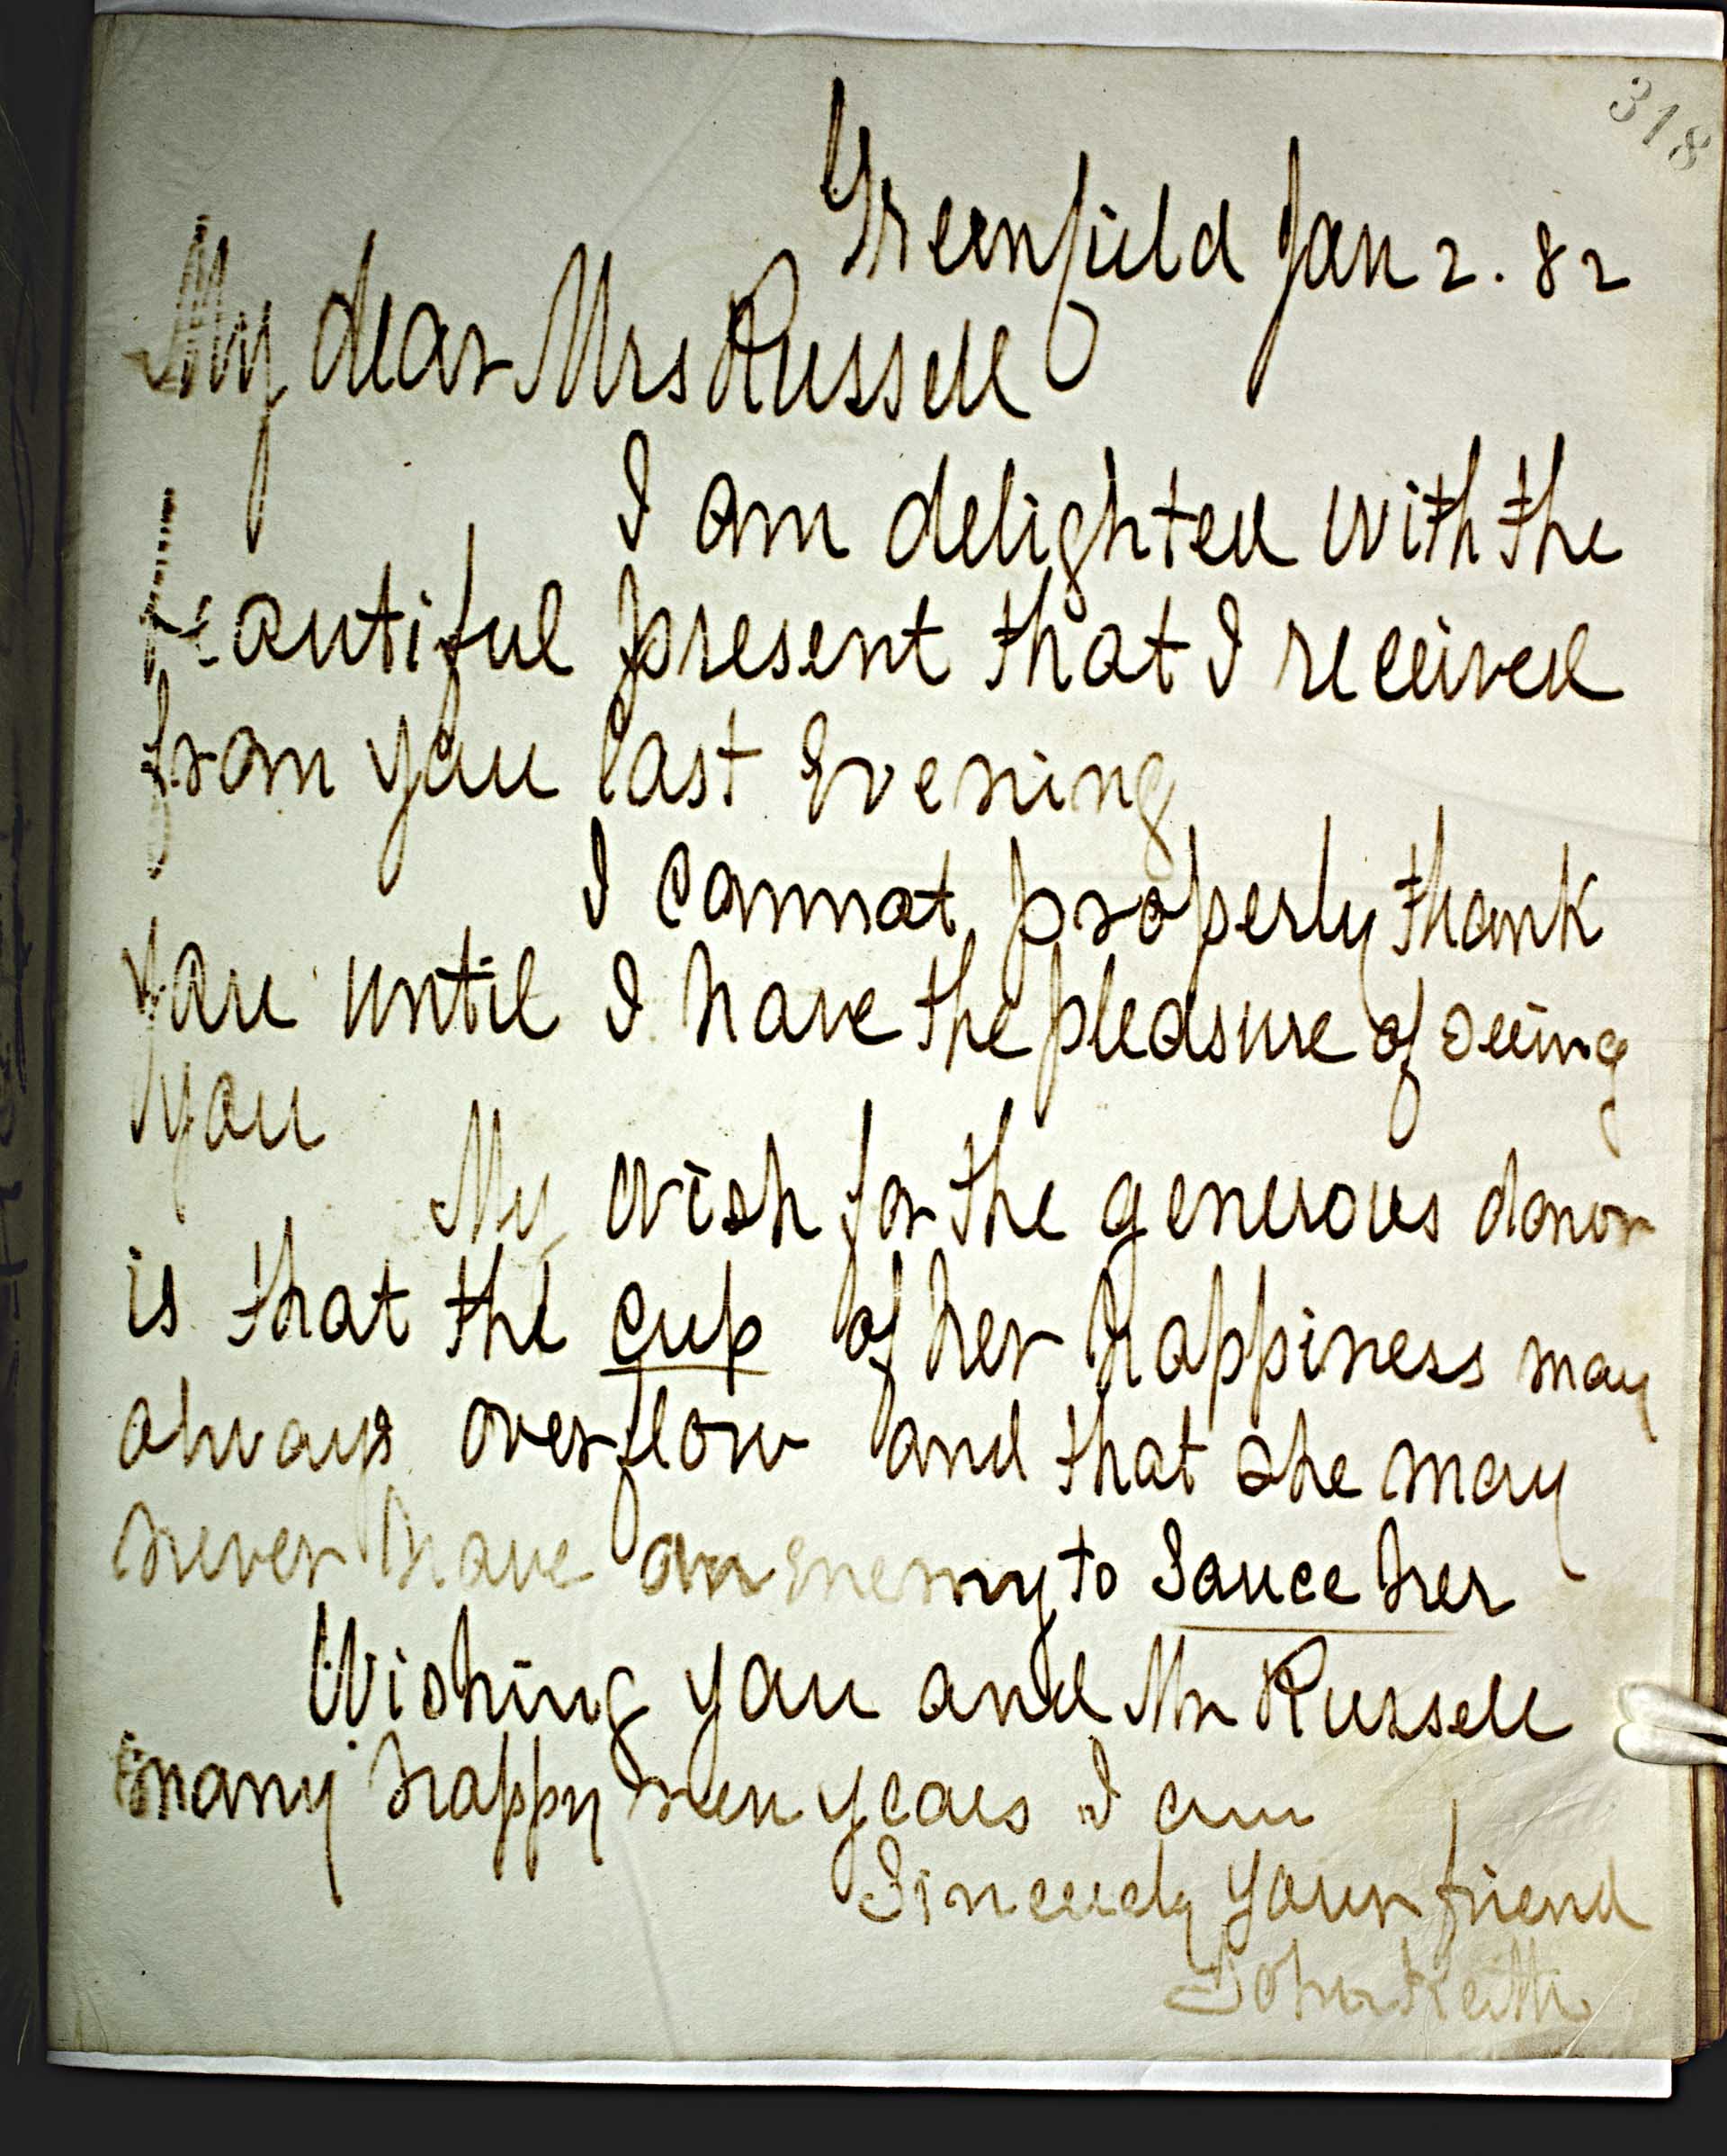 318
Greenfield Jan 2. 82
My dear Mrs Russell
I am delighted with the
beautiful present that I received
from you last Evening
I cannot properly thank
you until I have the pleasure of seeing
you
My wish for the generous donor
is that the cup of her happiness may
always overflow and that she may
never have an enemy to Sauce her
Wishing you and Mr Russell
many happy new years I am
Sincerely your friend
John Keith